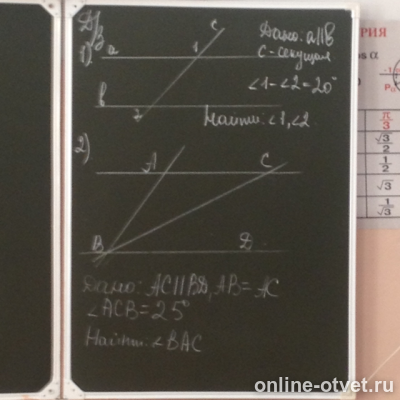 Д/з
1)
a
1
c
Дано: a||b
c - секущая
∠1-∠2=20°
b
2
Найти: ∠1,∠2
2)
A
C
B
D
Дано: AC||BD, AB=AC
∠ACB=25°
Найти: ∠BAC
РИЯ
os α
π/3
√3/2
1/2
√3
1/√3
online-otvet.ru